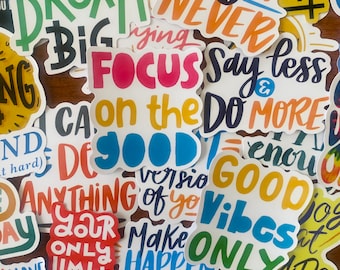 DREAM
BIG
NEVER
FOCUS
on the
GOOD
Say less
&
DO MORE
CA
DO
ANYTHING
AND
(at hard)
DAY
version
of yo
enou
GOOD
Vibes
ONLY
your
ONLY
LIMIT
Make
HAPPE